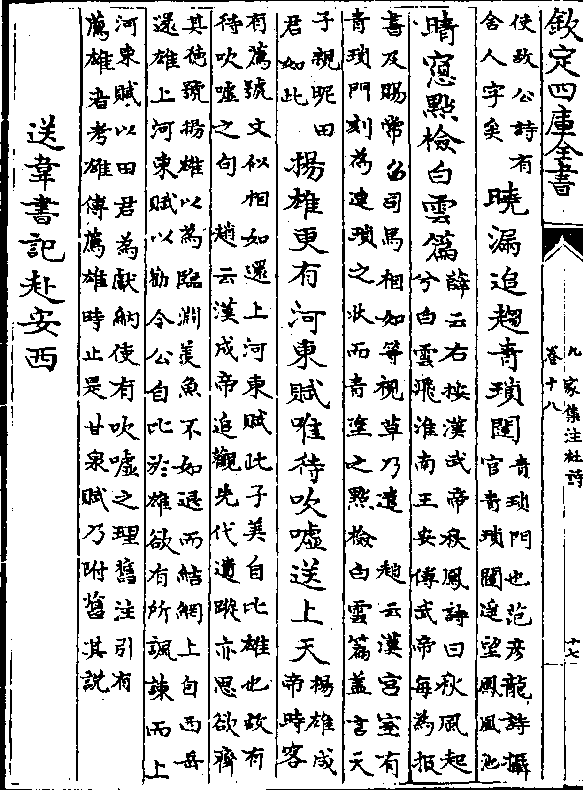 欽定四庫全書
九家集注杜詩
卷十八
十七
使故公詩有
舍人字矣
曉漏追趨青瑣闥
青瑣門也范彦龍詩攝
官青瑣闥遥望鳳凰池
晴窓點檢白雲篇
薛云右按漢武帝秋風詩曰秋風起
兮白雲飛淮南王安傳武帝每為報
書及賜常召司馬相如等視草乃遣 趙云漢宫室有
青瑣門刻為連瑣之狀而青塗之點檢白雲篇蓋言天
子親昵田
君如此
揚雄更有河東賦唯待吹嘘送上天
揚雄成
帝時客
有薦號文似相如還上河東賦此子美自比雄也故有
待吹嘘之句 趙云漢成帝追觀先代遺蹤亦思欲齊
其徳號揚雄以為臨淵羡魚不如退而結網上自西岳
還雄上河東賦以勸令公自比於雄欲有所諷諫而上
河東賦以田君為獻納使有吹嘘之理舊注引有
薦雄者考雄傳薦雄時止是甘泉賦乃附舊其説
送韋書記赴安西